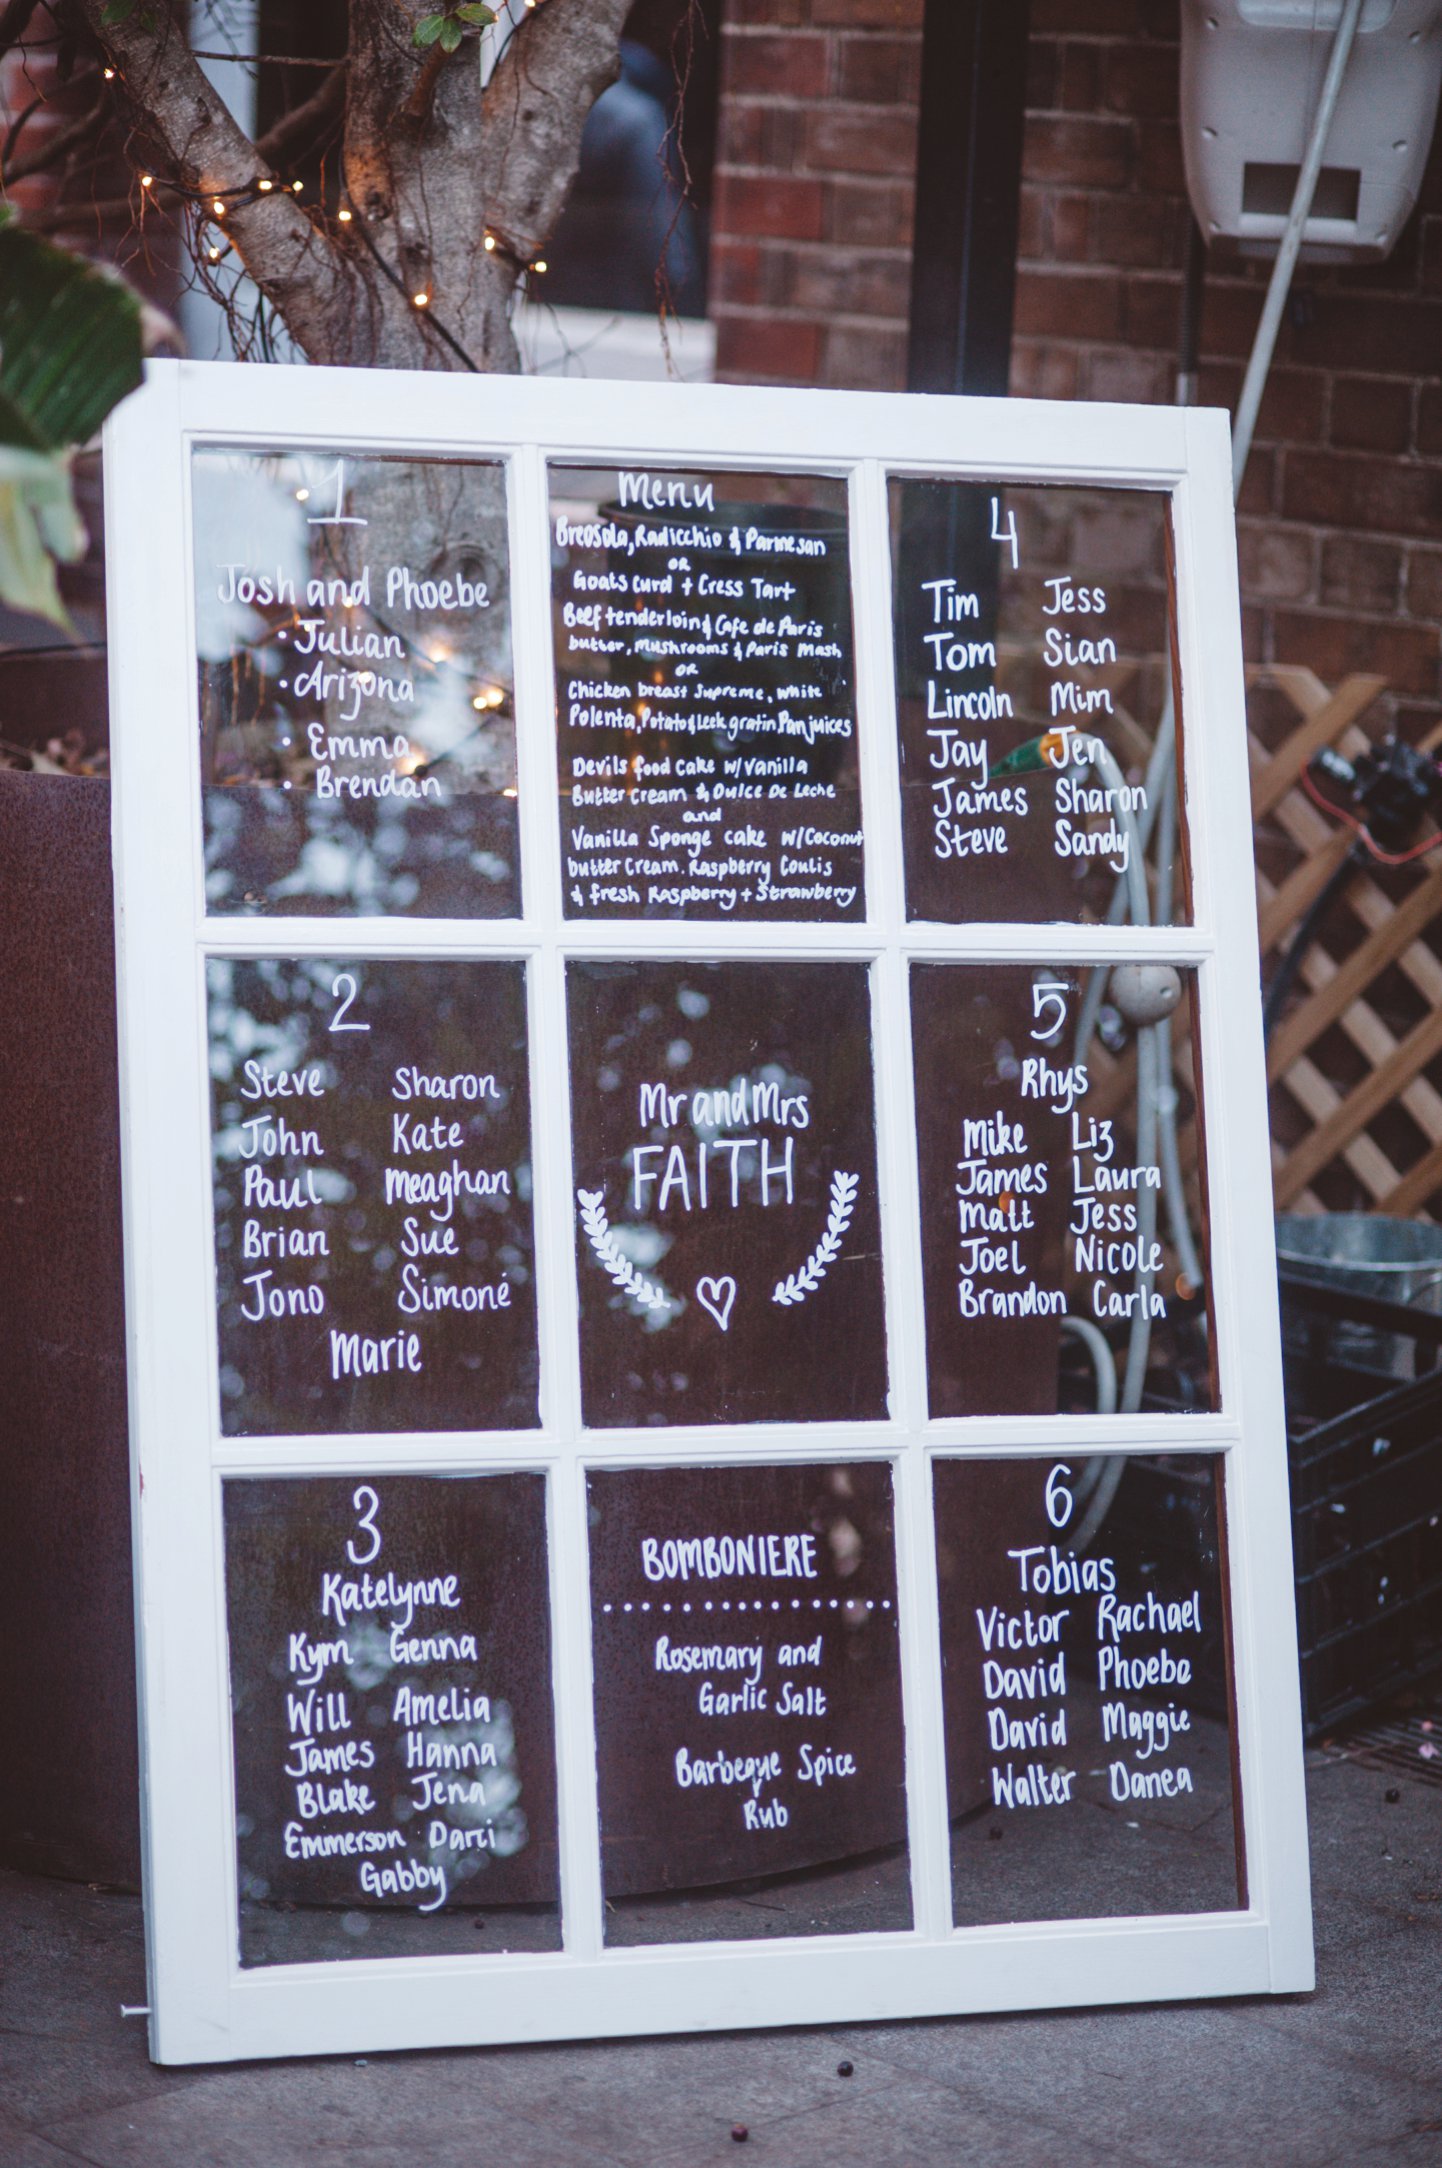 1
Josh and Phoebe
• Julian
• Arizona
• Emma
• Brendan
Menu
Breosola, Radicchio & Parmesan
or
Goats curd + Cress Tart
Beef tenderloin & Cafe de Paris
butter, mushrooms & Paris Mash
or
Chicken breast Supreme, white
Polenta, Potato & Leek gratin Pan juices
Devils food cake w/ vanilla
Butter cream & Dulce De Leche
and
Vanilla Sponge cake w/ Coconut
butter Cream. Raspberry Coulis
& fresh Raspberry + Strawberry
4
Tim Jess
Tom Sian
Lincoln Mim
Jay Jen
James Sharon
Steve Sandy
2
Steve Sharon
John Kate
Paul Meaghan
Brian Sue
Jono Simoné
Marie
Mr and Mrs
FAITH
5
Rhys
Mike Liz
James Laura
Matt Jess
Joel Nicole
Brandon Carla
3
Katelynne
Kym Genna
Will Amelia
James Hanna
Blake Jena
Emmerson Darci
Gabby
BOMBONIERE
Rosemary and
Garlic Salt
Barbeque Spice
Rub
6
Tobias
Victor Rachael
David Phoebe
David Maggie
Walter Danea